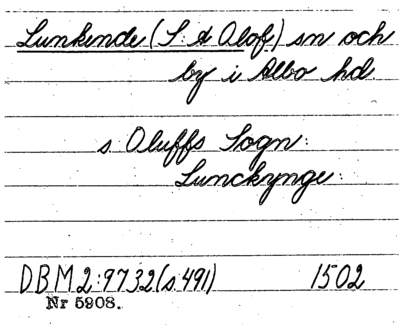 Lunkende (S:t Olof) sn och
by i Albo hd.
s Oluffs Sogn:
Lunckynge:
DBM 2:9732 (s 491) 1502
Nr 5908.